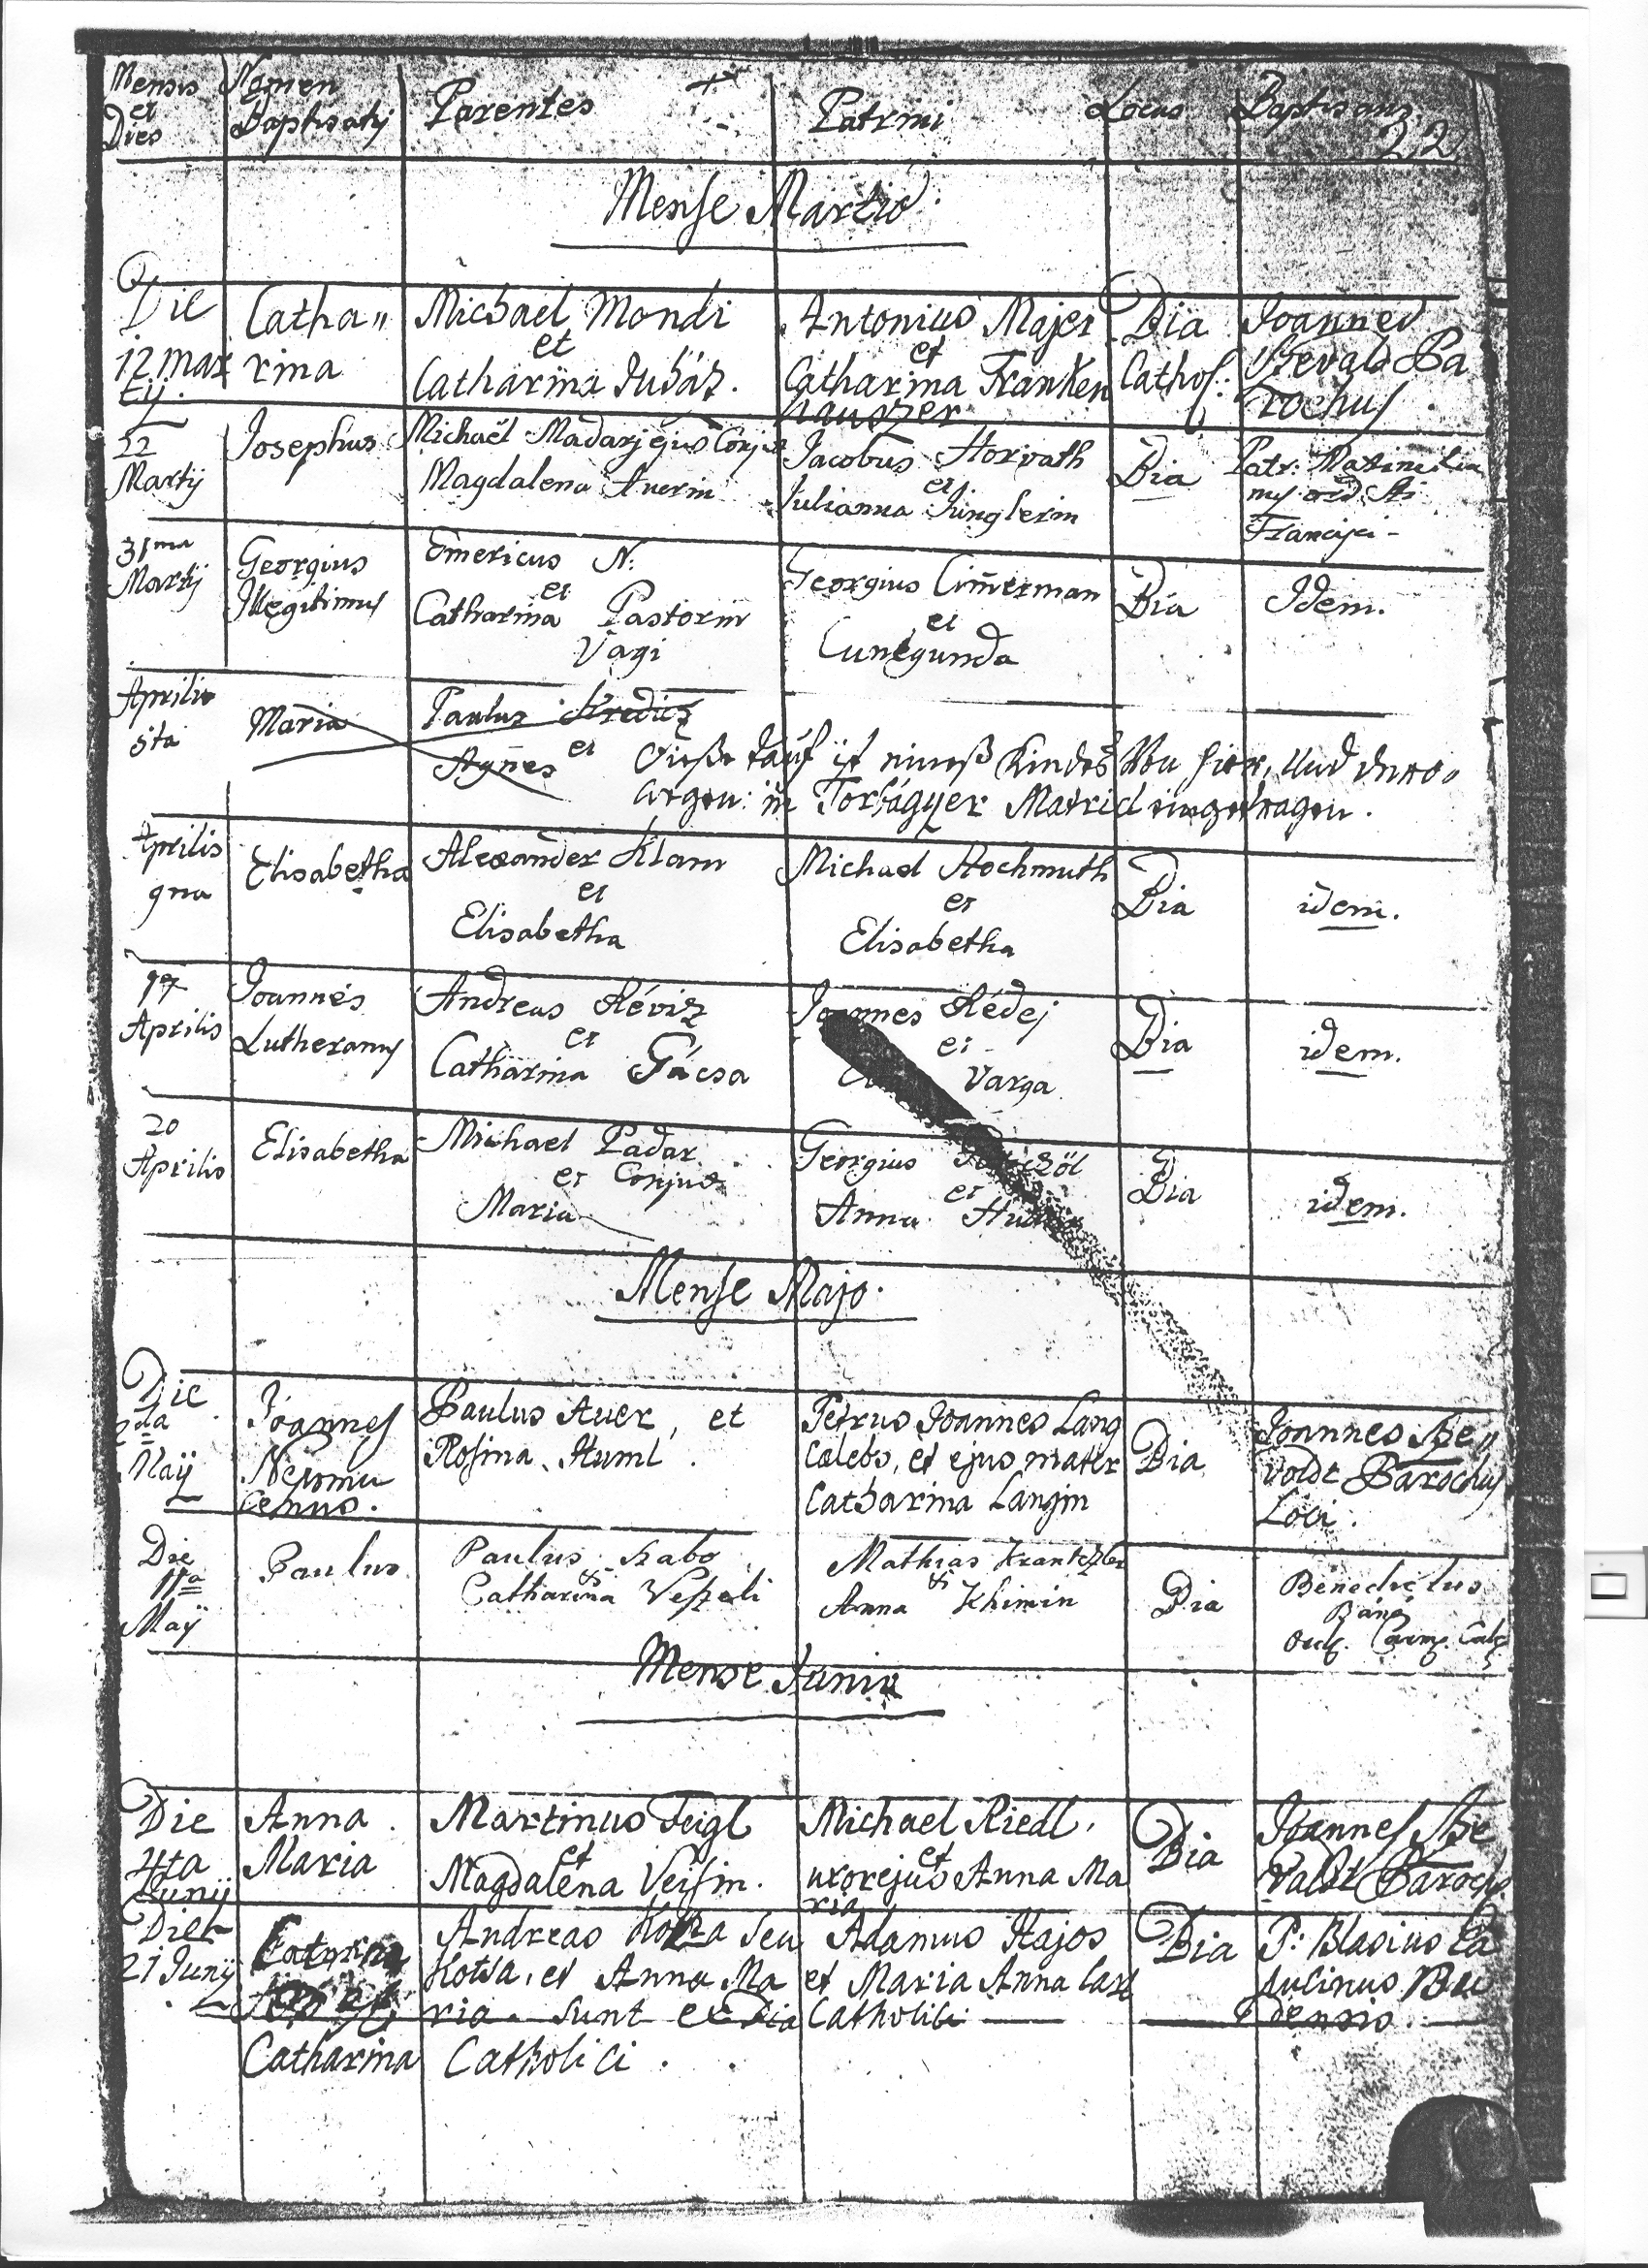 Mensis et Dies
Nomen Baptisatj
Parentes
Patrini
Locus
Baptisans
22
Mense Martio
Die 12 Mar tij.
Catha„ rina
Michael Mondi et Catharina Juhász.
Antonius Majer et Catharina Franken hauszer
Dia Cathol:
Joannes Bevald Pa rochus
22 Martij
Josephus
Michaël Madarj ejus Conjux Magdalena Auerin
Jacobus Horvath et Julianna Kinglerin
Dia
Patr: Maximilia nus ord. Sti Francisci -
31ma Martij
Georgius Illegitimus
Emericus N. et Catharina Pastorin Vagi
Georgius Cimerman et Cunegunda
Dia
Idem.
Aprilis 5ta
Maria
Paulus
et Agnes
Diese Tauf ist eines Kindes Von hier, Und
in Torbágyer Matricl eingetragen.
Aprilis 9na
Elisabetha
Alexander Klam et Elisabetha
Michael Hochmuth et Elisabetha
Dia
idem.
17 Aprilis
Joannes Lutheranus
Andreas Réviz et Catharina Gácsa
Joannes Rédej et Varga
Dia
idem.
20 Aprilis
Elisabetha
Michael Padar et Conjux Maria
Georgius et Anna
Dia
idem.
Mense Majo.
Die 2da Maij
Joannes Nepomu cenus.
Paulus Auer, et Rosina Huml.
Petrus Joannes Lang Caelebs, et ejus mater Catharina Langin
Dia
Joannes Be„ voldt Parochus Loci.
Die 11a Maij
Paulus
Paulus Szabo & Catharina Veszeli
Mathias & Anna Khimin
Dia
Benedictus
Mense Junio
Die 4ta Junij
Anna Maria
Martinus Feigl et Magdalena Veisin.
Michael Riedl, et uxor ejus Anna Ma ria
Dia
Joannes Be valdt Paroch9
Die 21 Junij
Catharina
Andreas seu Kotsa, et Anna Ma ria. sunt ex Dia Catholici.
Adamus Hajos et Maria Anna Catholici
Dia
P: Blasius Ca pucinus Bu densis.